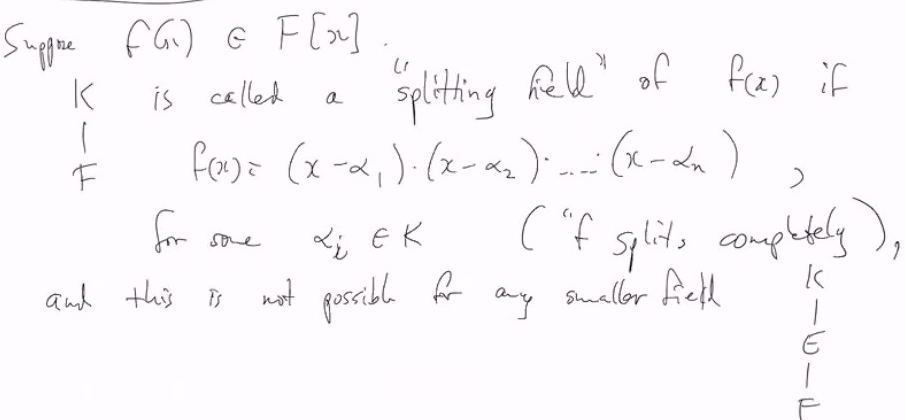 Suppose f(x) ∈ F[x].
K is called a "splitting field" of f(x) if
|
F f(x) = (x-α₁)·(x-α₂)·....·(x-αₙ),
for some αᵢ ∈ K ("f splits completely),
and this is not possible for any smaller field K
|
E
|
F